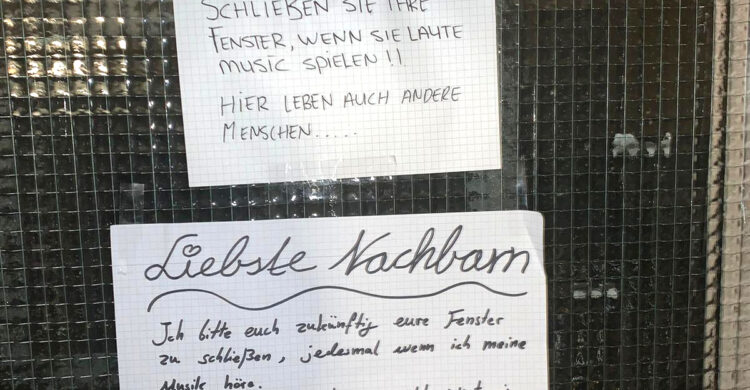 SCHLIEßEN SIE IHRE
FENSTER, WENN SIE LAUTE
MUSIC SPIELEN!!
HIER LEBEN AUCH ANDERE
MENSCHEN.....
Liebste Nachbarn
Ich bitte euch zukünftig eure Fenster
zu schließen, jedesmal wenn ich meine
Musik höre.